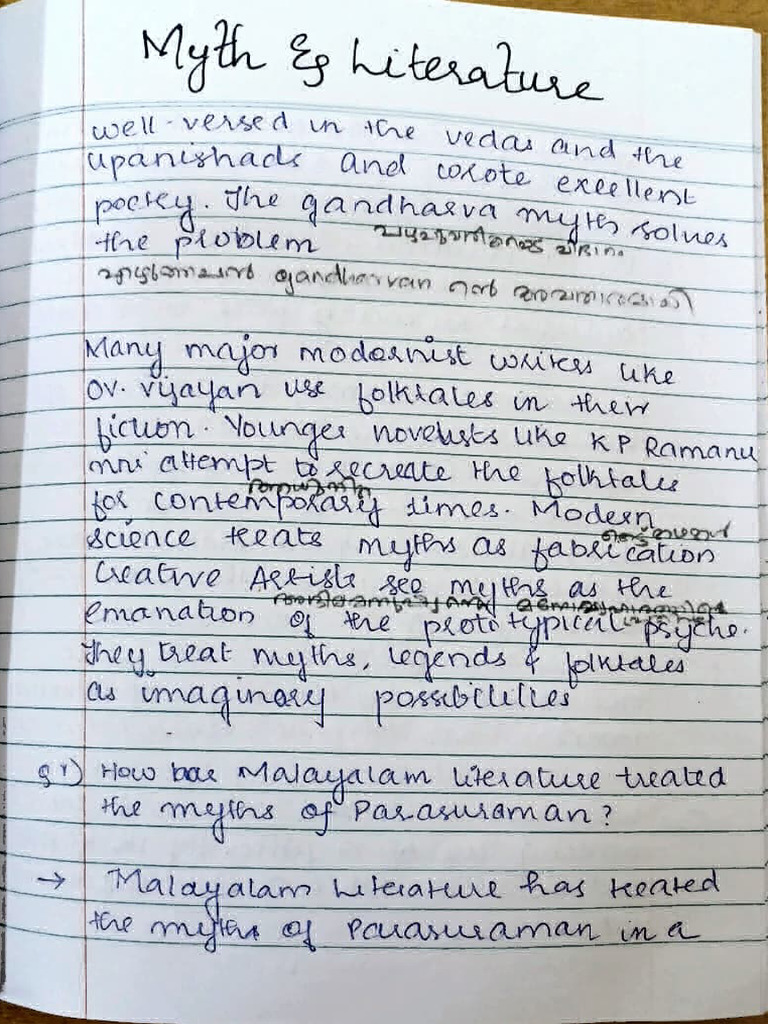 Myth & Literature
well-versed in the vedas and the
upanishads and wrote excellent
poetry. The gandharva myth solves
the problem
gandharvan ന്റെ
Many major modernist writers like
OV. Vijayan use folktales in their
fiction. Younger novelists like K P Ramanu
nni attempt to recreate the folktales
for contemporary times. Modern
science treats myths as fabrication
Creative Artists see myths as the
emanation of the prototypical psyche.
They treat myths, legends & folktales
as imaginary possibilities
Q 1) How has Malayalam literature treated
the myths of Parasuraman?
→ Malayalam Literature has treated
the myths of Parasuraman in a